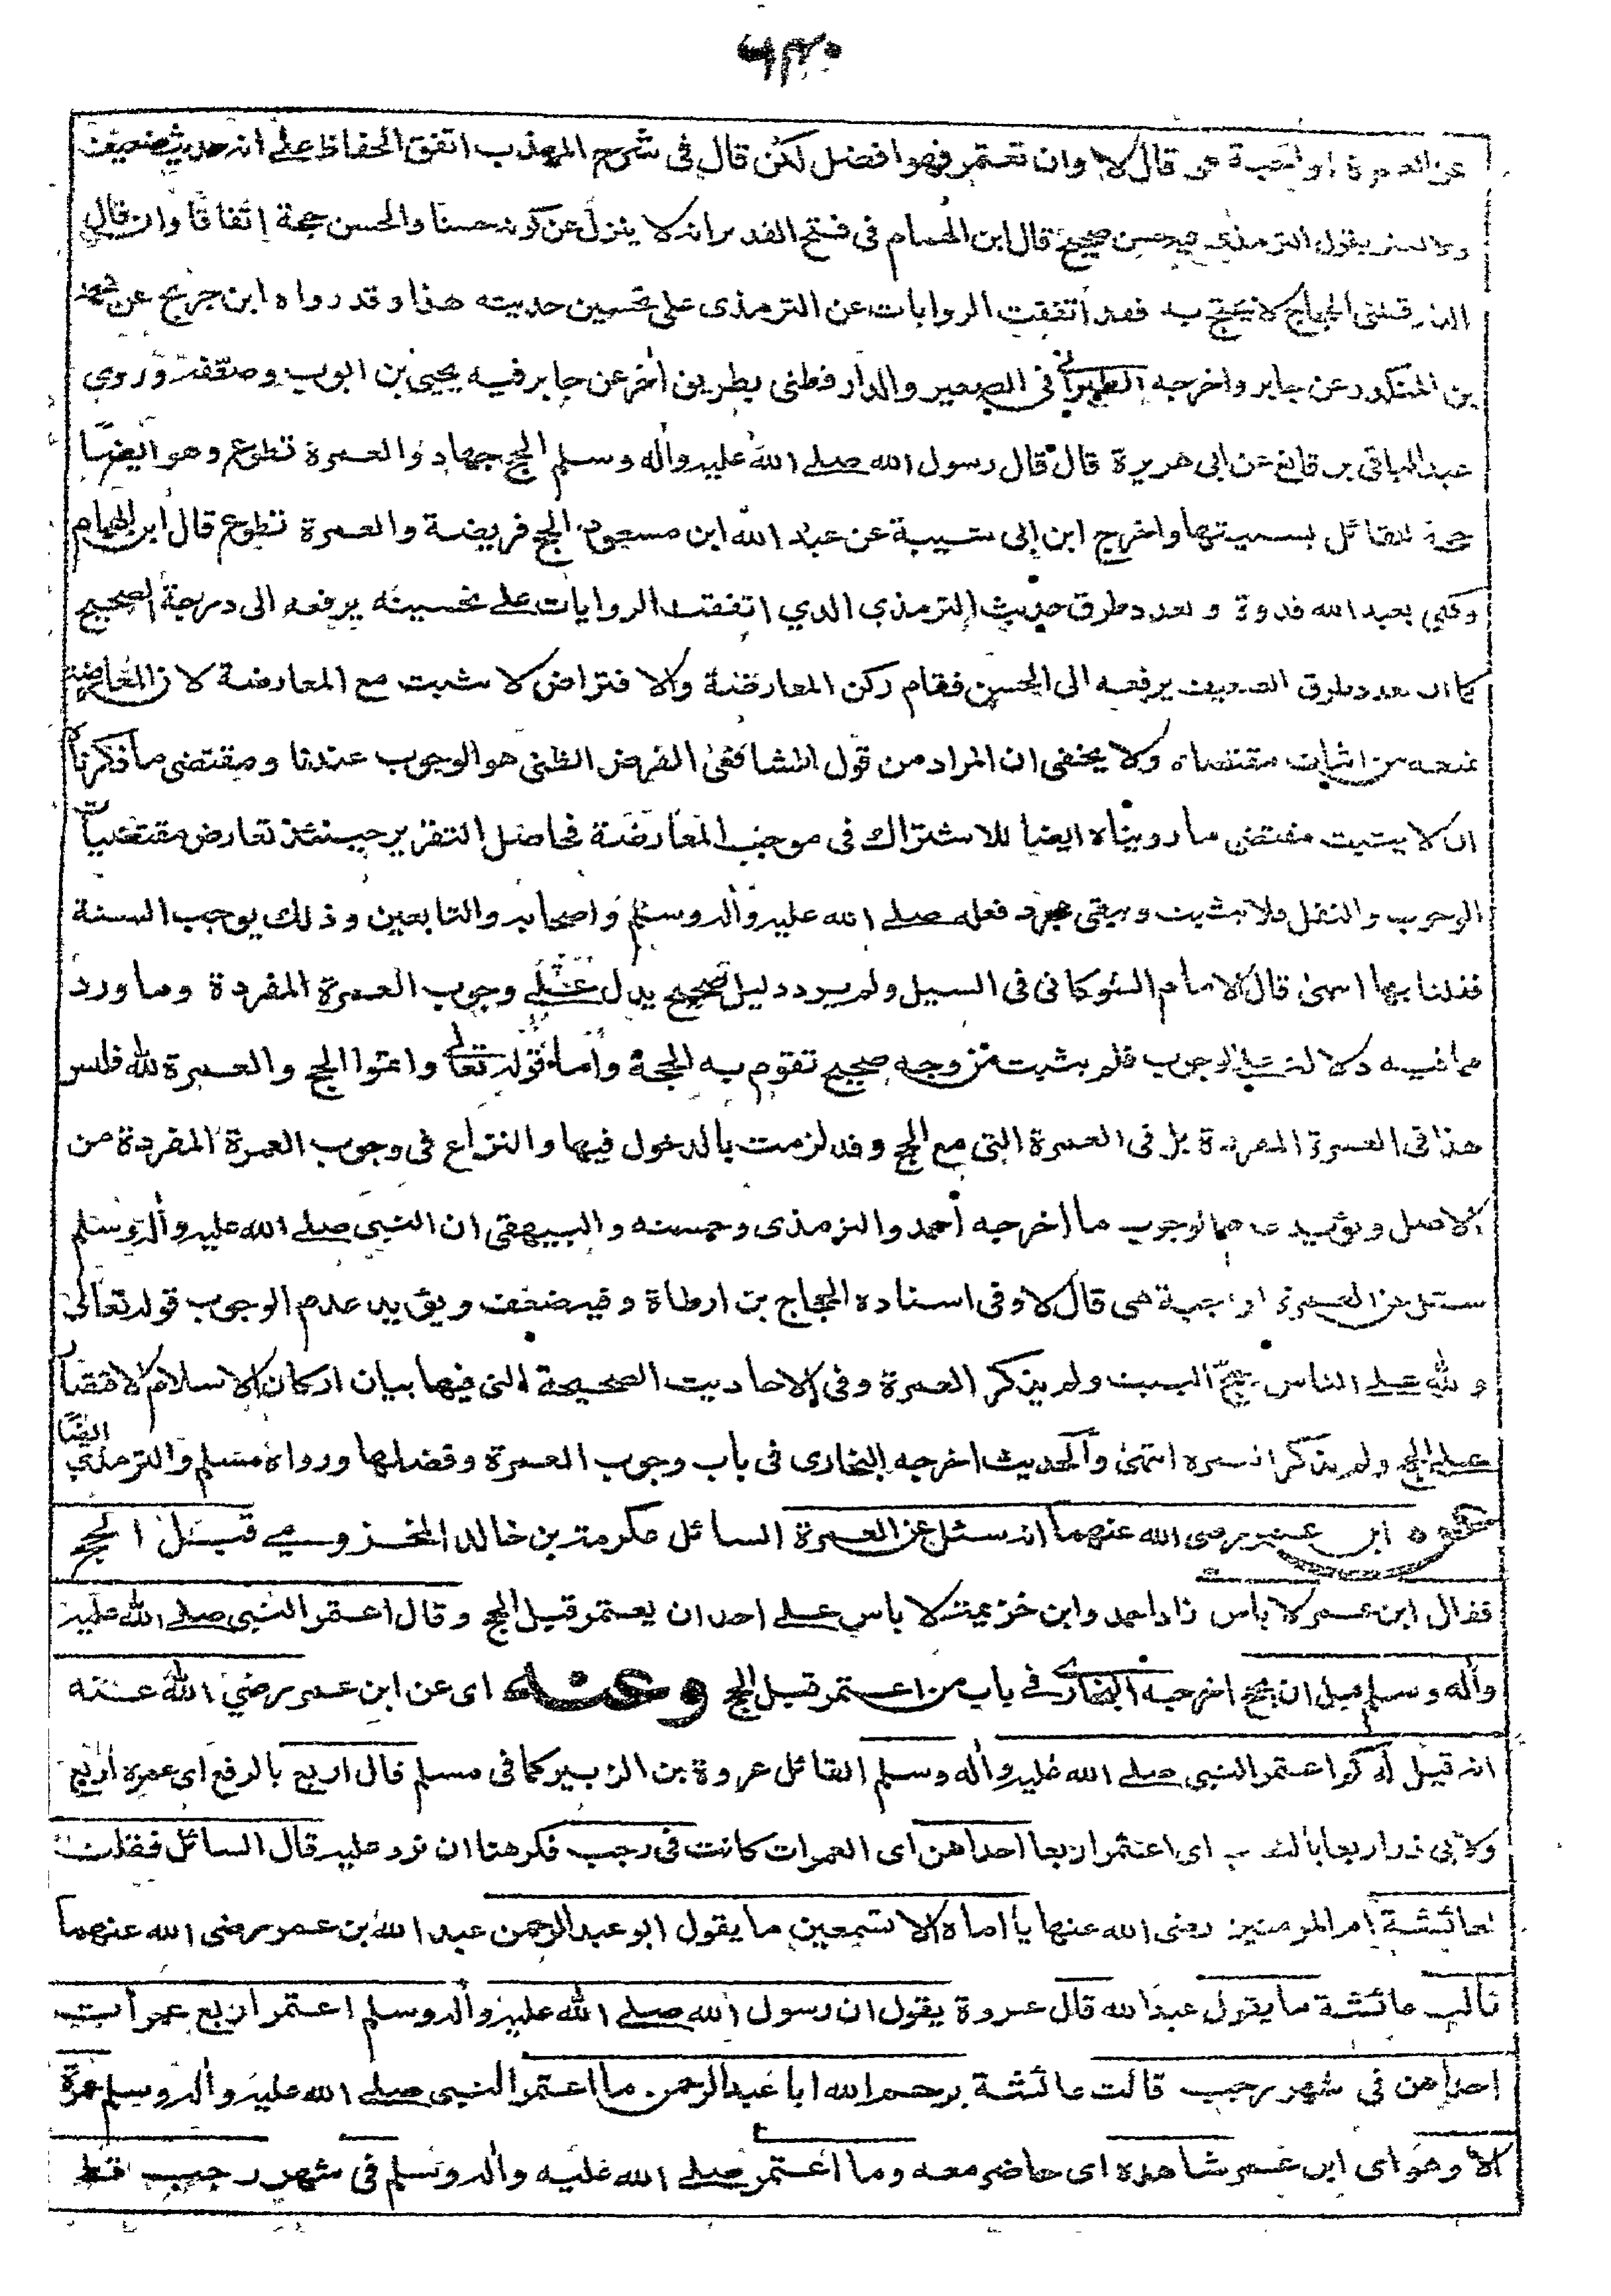 عن العمرة اواجبة هى قال لا وان تعتمر فهو افضل لكن قال فى شرح المهذب اتفق الحفاظ على انه حديث ضعيف
ولا يغتر بقول الترمذى فيه حسن صحيح قال ابن الهمام فى فتح القدير انه لا ينزل عن كونه حسنا والحسن حجة اتفاقا وان قال
الدارقطنى الحجاج لا يحتج به فقد اتفقت الروايات عن الترمذى على تحسين حديثه هذا وقد رواه ابن جريج عن محمد
بن المنكدر عن جابر واخرجه الطبرانى فى الصغير والدارقطنى بطريق اخر عن جابر فيه يحيى بن ايوب وضعفه وروى
عبد الباقى بن قانع عن ابى هريرة قال قال رسول الله صلے الله عليه واله وسلم الحج جهاد والعمرة تطوع وهو ايضا
حجة للقائل بسنيتها واخرج ابن ابى شيبة عن عبد الله ابن مسعود الحج فريضة والعمرة تطوع قال ابن الهمام
وكفي بعبد الله قدوة وتعدد طرق حديث الترمذى الذي اتفقت الروايات على تحسينه يرفعه الى درجة الصحيح
كما ان تعدد طرق الضعيف يرفعه الى الحسن فقام ركن المعارضة والافتراض لا يثبت مع المعارضة لان المعارضة
تمنعه من اثبات مقتضاه ولا يخفى ان المراد من قول الشافعى الفرض الظنى هو الوجوب عندنا ومقتضى ما ذكرناه
ان لا يثبت مقتضى ما رويناه ايضا للاشتراك فى موجب المعارضة فحاصل التقرير حينئذ تعارض مقتضيات
الوجوب والنفل فلا يثبت ويبقى مجرد فعله صلے الله عليه واله وسلم واصحابه والتابعين وذلك يوجب السنة
فقلنا بها انتهى قال الامام الشوكانى فى السيل ولم يرد دليل صحيح يدل علے وجوب العمرة المفردة وما ورد
مما فيه دلالة علے الوجوب فلم يثبت من وجه صحيح تقوم به الحجة واما قوله تعالے واتموا الحج والعمرة لله فليس
هذا فى العمرة المفردة بل فى العمرة التى مع الحج وقد لزمت بالدخول فيها والنزاع فى وجوب العمرة المفردة من
الاصل ويؤيد عدم الوجوب ما اخرجه احمد والترمذى وحسنه والبيهقى ان النبى صلے الله عليه واله وسلم
سئل عن العمرة اواجبة هى قال لا وفى اسناده الحجاج بن ارطاة وفيه ضعف ويؤيد عدم الوجوب قوله تعالى
ولله علے الناس حج البيت ولم يذكر العمرة وفى الاحاديث الصحيحة التى فيها بيان اركان الاسلام الاقتصار
علے الحج ولم يذكر العمرة انتهى والحديث اخرجه البخارى فى باب وجوب العمرة وفضلها ورواه مسلم والترمذى ايضا
عن ابن عمر رضى الله عنهما انه سئل عن العمرة السائل عكرمة بن خالد المخزومى قبل الحج
فقال ابن عمر لا باس زاد احمد وابن خزيمة لا باس علے احد ان يعتمر قبل الحج وقال اعتمر النبى صلے الله عليه
واله وسلم قبل ان يحج اخرجه البخارى فے باب من اعتمر قبل الحج وعنه اى عن ابن عمر رضي الله عنه
انه قيل له كم اعتمر النبى صلے الله عليه واله وسلم القائل عروة بن الزبير كما فى مسلم قال اربع بالرفع اى عمره اربع
ولابى ذر اربعا بالنصب اى اعتمر اربعا احداهن اى العمرات كانت فى رجب فكرهنا ان نرد عليه قال السائل فقلت
لعائشة ام المومنين رضى الله عنها يا اماه الا تسمعين ما يقول ابو عبد الرحمن عبد الله بن عمر رضى الله عنهما
قالت عائشة ما يقول عبد الله قال عروة يقول ان رسول الله صلے الله عليه واله وسلم اعتمر اربع عمرات
احداهن فى شهر رجب قالت عائشة يرحم الله ابا عبد الرحمن ما اعتمر النبى صلے الله عليه واله وسلم عمرة
الا وهو اى ابن عمر شاهده اى حاضر معه وما اعتمر صلے الله عليه واله وسلم فى شهر رجب قط